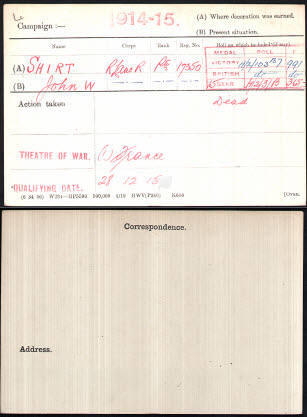 Campaign :— 1914-15. (A) Where decoration was earned.
(B) Present situation.
Name Corps Rank Reg. No. Roll on which included (if any).
MEDAL ROLL
(A) SHIRT R Lanc R Pte 17350 VICTORY H/2/103 B7 991
(B) John W BRITISH do do
15 STAR H/2/3/B 365
Action taken Dead
THEATRE OF WAR. (1) France
QUALIFYING DATE. 28 12 15
(6 34 46) W234—HP5590 500,000 4/19 HWV(P240) K608 [Over.
Correspondence.
Address.